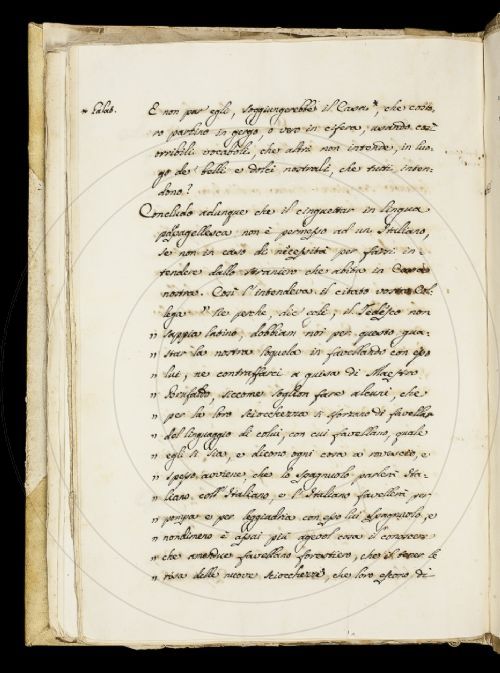 * Galat.
E non par egli, soggiungerebbe il Casa *, che costo-
ro parlino in gergo, o vero in cifera, usando così
orribili vocaboli, che altri non intende, in luo-
go de' belli e dolci nostrali, che tutti inten-
dono?
Concludo adunque che il cinguettar in lingua
pappagallesca non è permesso ad un Italiano,
se non in caso di necessità per farsi in-
tendere dallo straniero che abita in Casa
nostra. Così l'intendeva il citato vostro Col-
lega " Ne perché, dic' egli, il Tedesco non
" sappia latino, dobbiam noi per questo gua-
" star la nostra loquela in favellando con esso
" lui, ne contraffarci a guisa di Maestro
" Brufaldo, siccome soglion fare alcuni, che
" per la loro sciocchezza si sforzano di favellar
" del linguaggio di colui, con cui favellano, quale
" egli si sia, e dicono ogni cosa a rovescio, e
" spesso avviene che lo spagnuolo parlerà Ita-
" liano coll' Italiano, e l'Italiano favellerà per
" pompa e per leggiadria con esso lui spagnuolo, e
" nondimeno è assai più agevol cosa il conoscere
" che amendue favellano forestiero, che il tener le
" risa delle nuove sciocchezze, che loro escono di